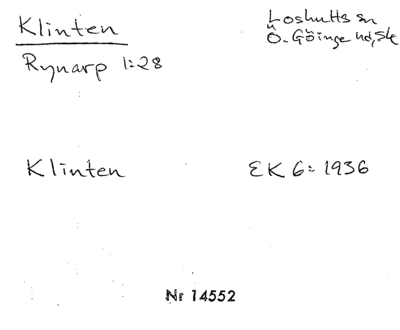 Klinten
Rynarp 1:28
Loshults sn
Ö. Göinge hd, Sk
Klinten
EK 6: 1936
Nr 14552